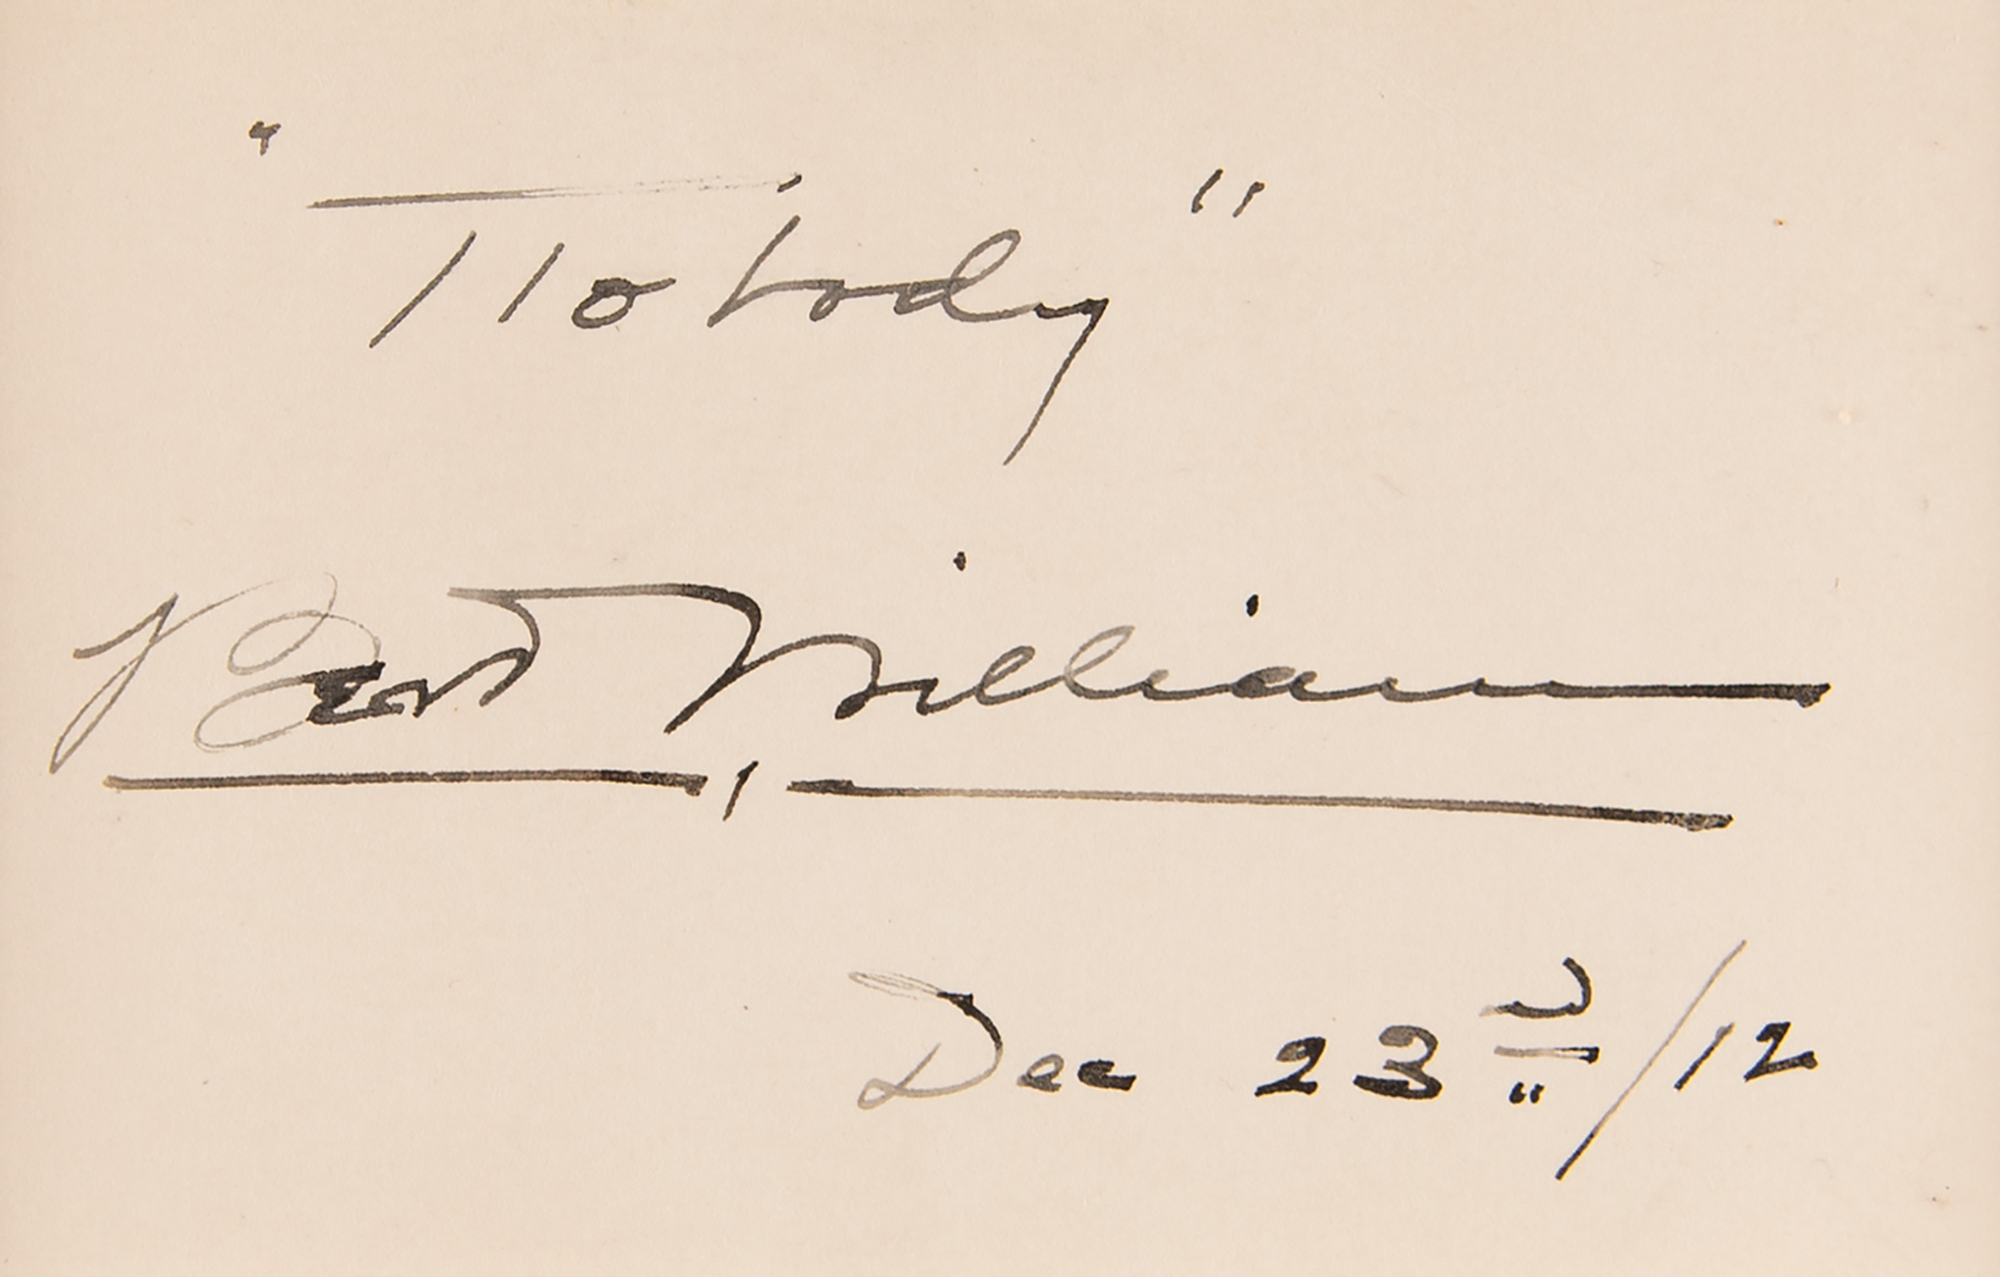 "Nobody"
Bert Williams
Dec 23 d/12